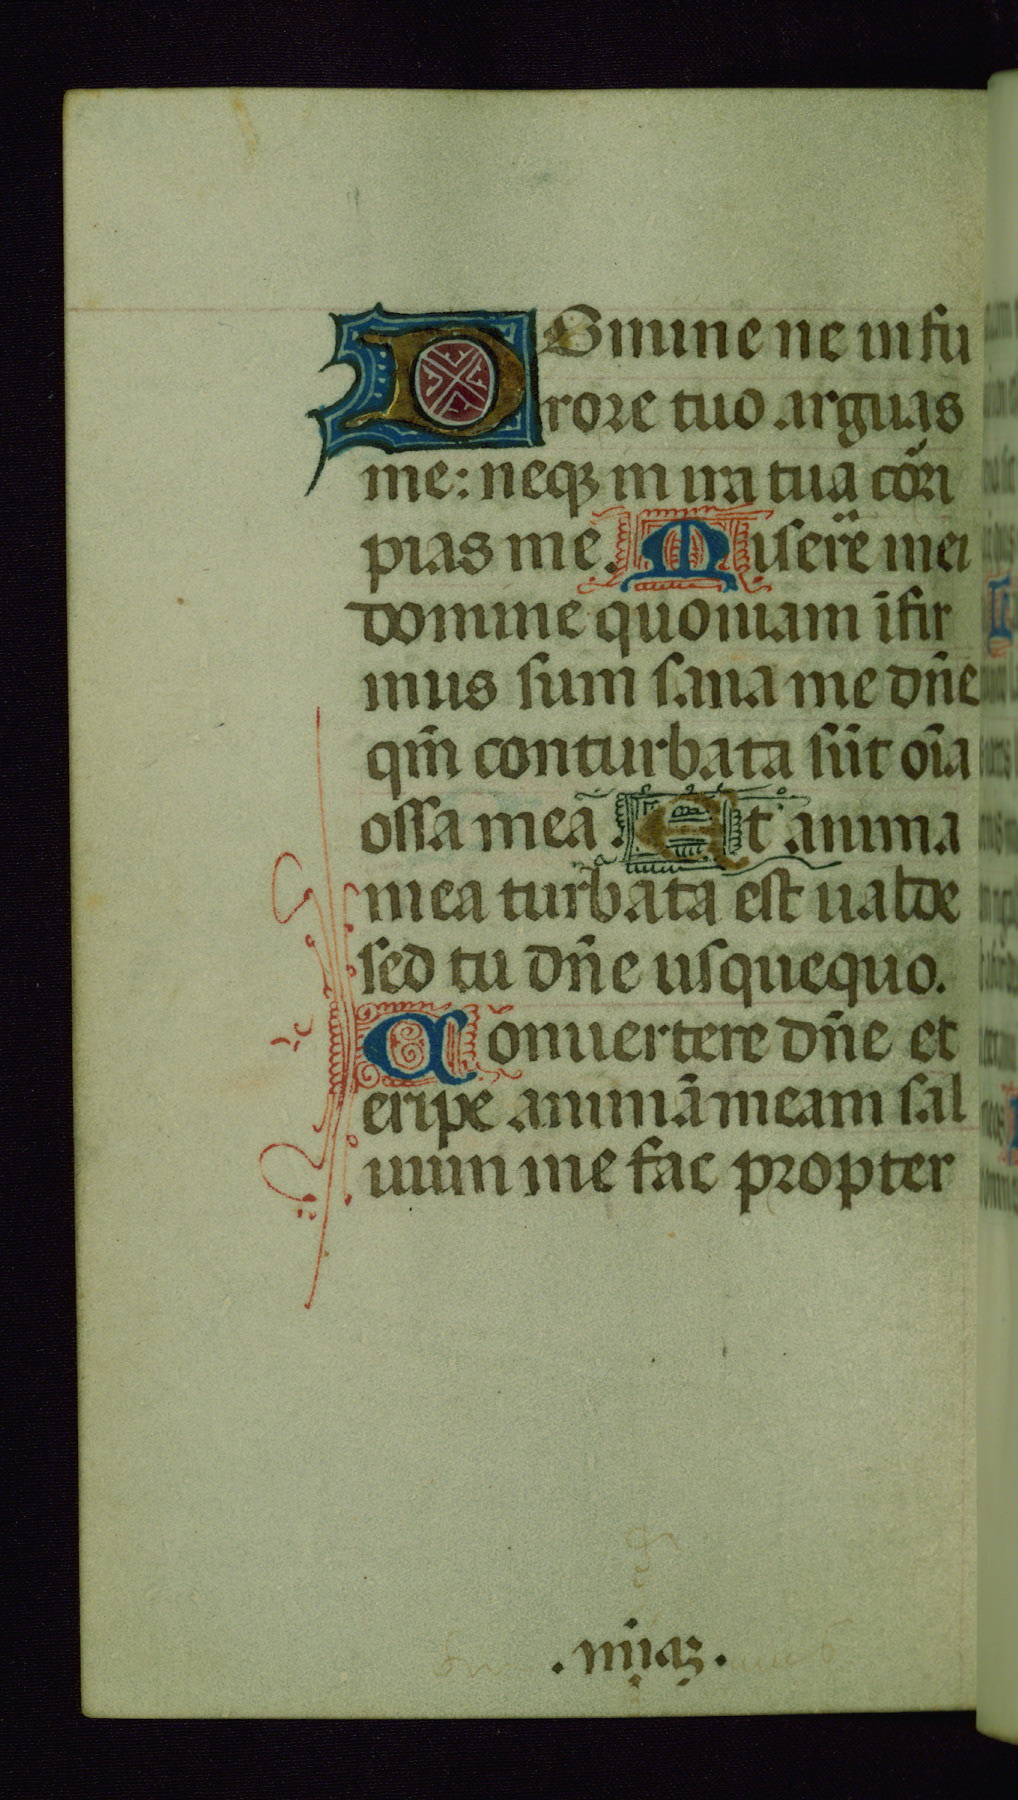 Domine ne in fu
rore tuo arguas
me: neqꝫ in ira tua cōri
pias me. Miserē mei
domine quoniam īfir
mus sum sana me dn̄e
qm̄ conturbata sūt oīa
ossa mea. Et anima
mea turbata est ualde
sed tu dn̄e usquequo.
Conuertere dn̄e et
eripe animā meam sal
uum me fac propter